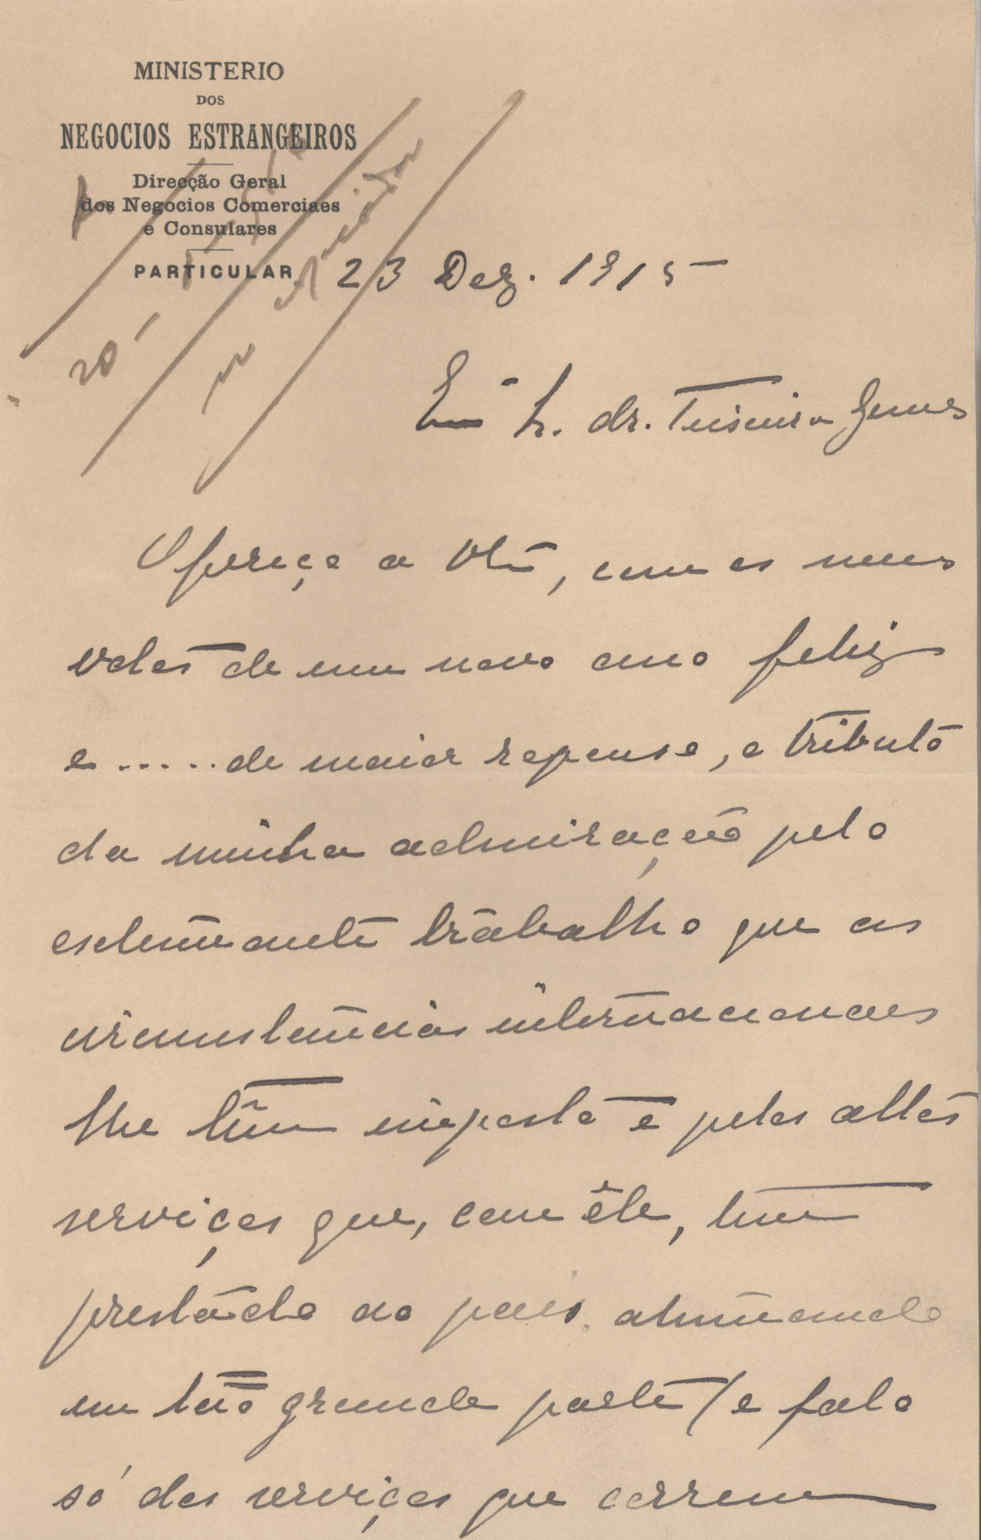 MINISTERIO
DOS
NEGOCIOS ESTRANGEIROS
Direcção Geral
dos Negocios Comerciaes
e Consulares
PARTICULAR
23 Dez. 1915
Sr. dr. Teixeira Gomes
Ofereço a V. Ex.ª, com os meus
votos de um novo ano feliz
e ..... de maior repouso, o tributo
da minha admiração pelo
esclumante trabalho que as
circumstancias internacionaes
lhe têm imposto e pelos altos
serviços que, com êle, tem
prestado ao pais. aluminando
em tão grande parte (e falo
só dos serviços que correm